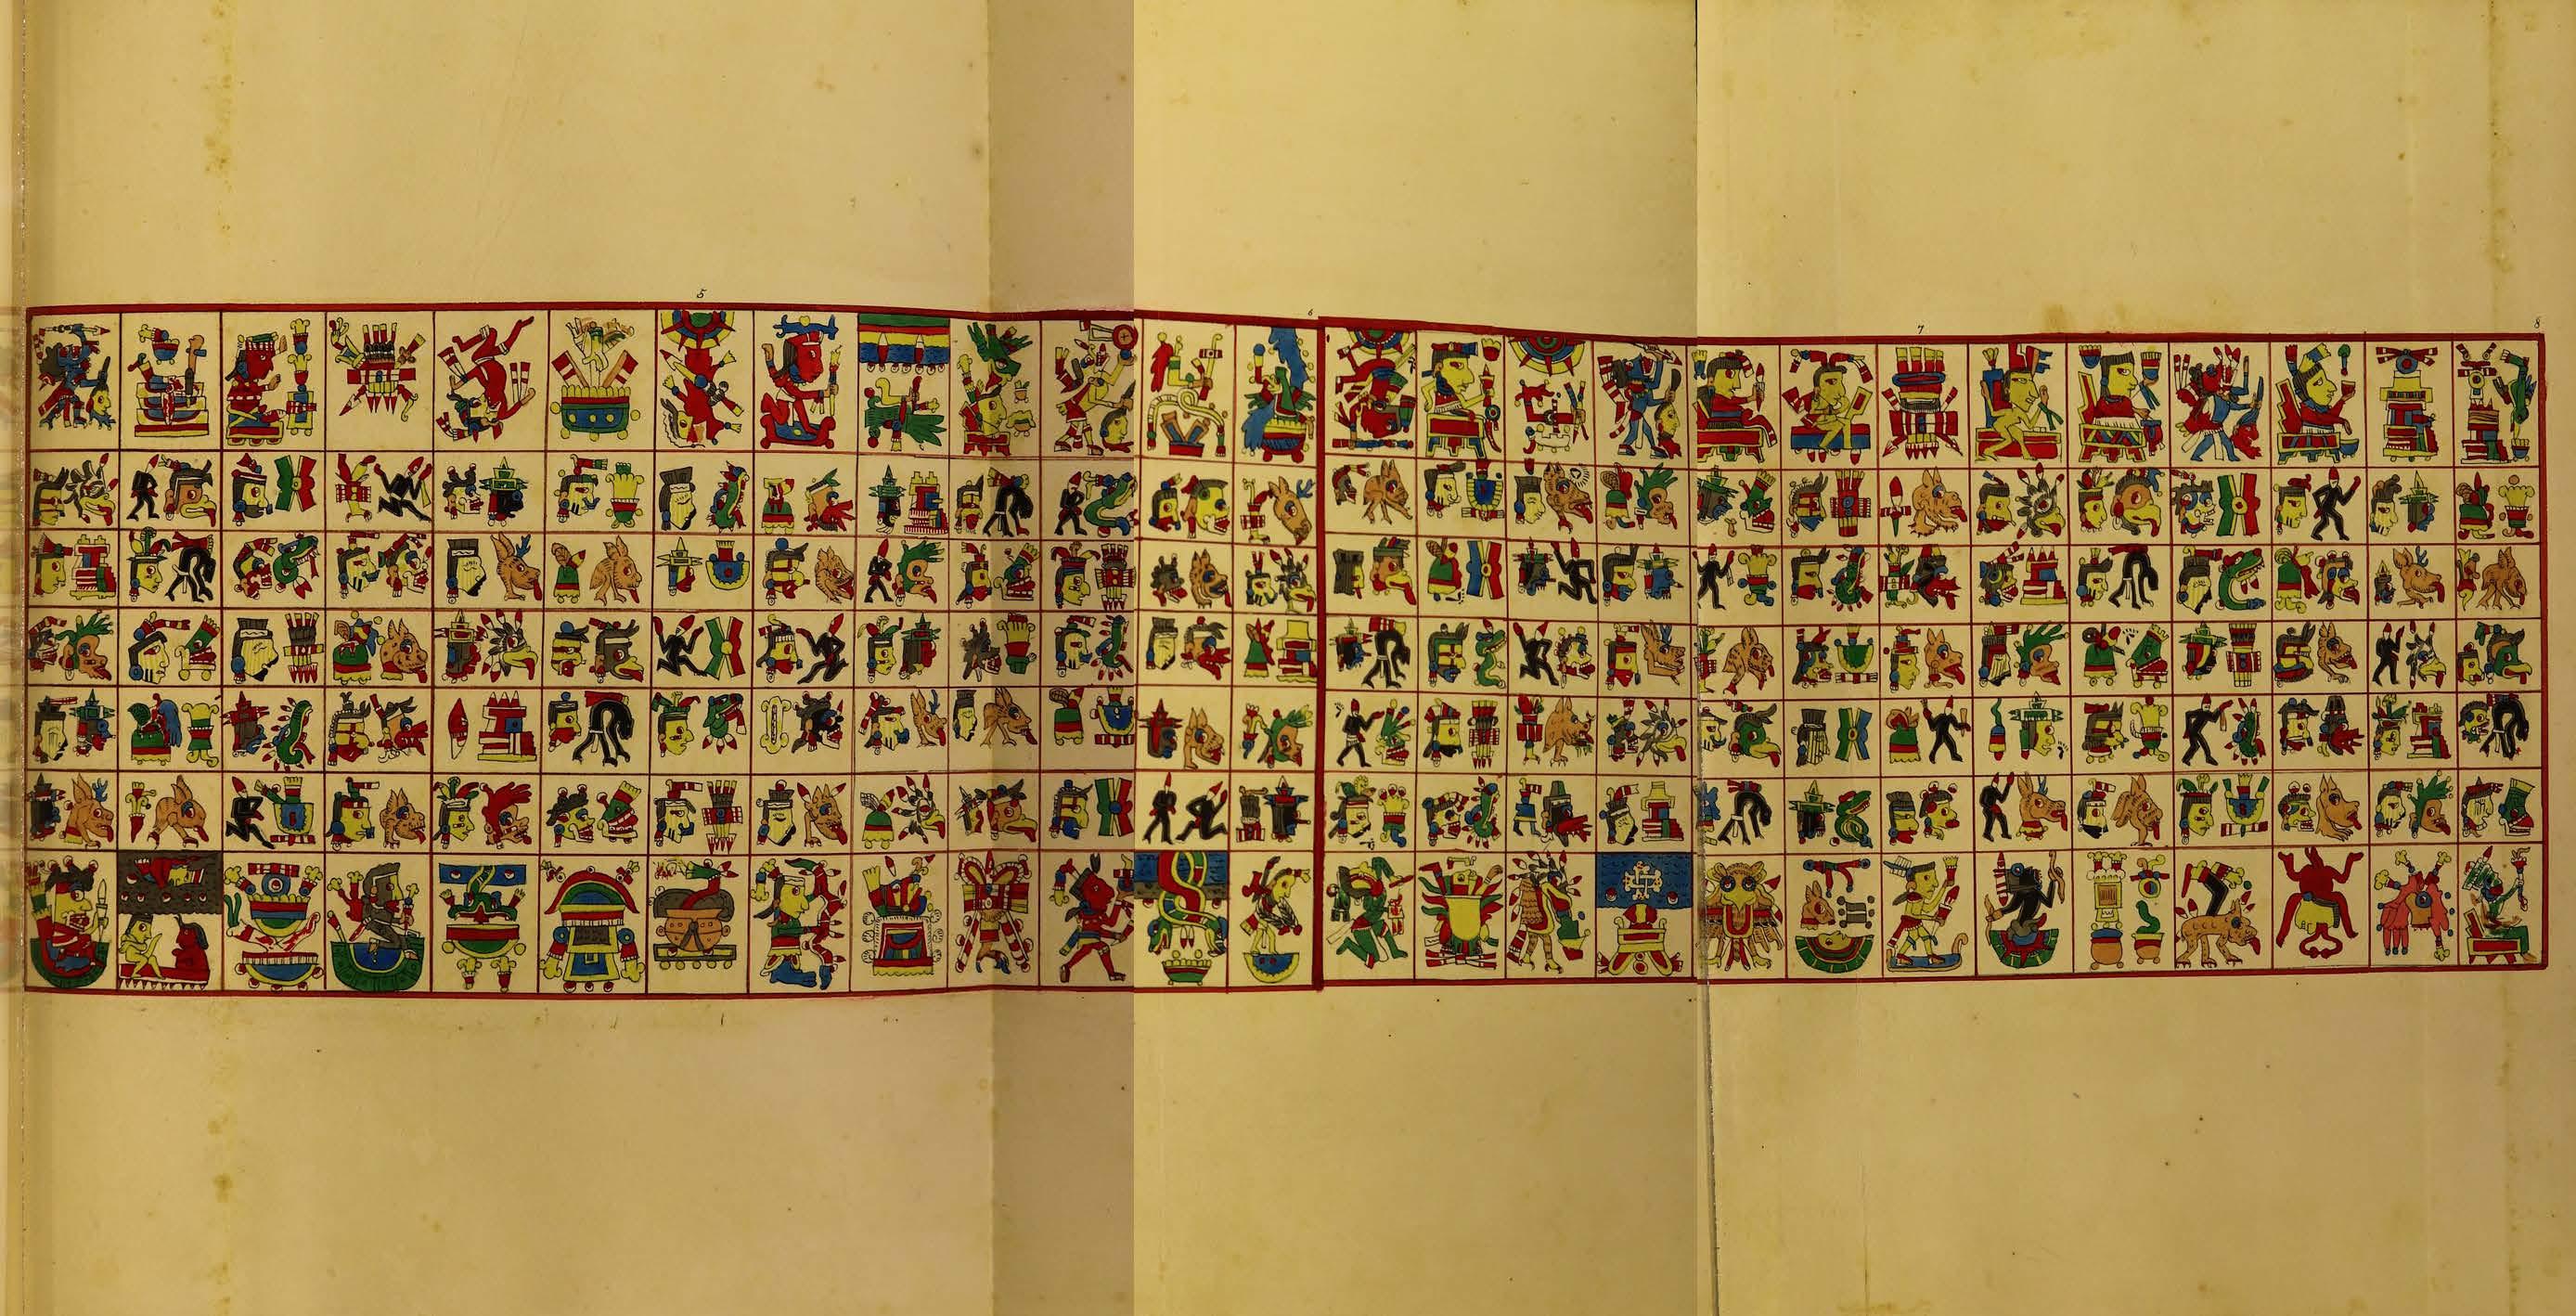 5
6
7
8